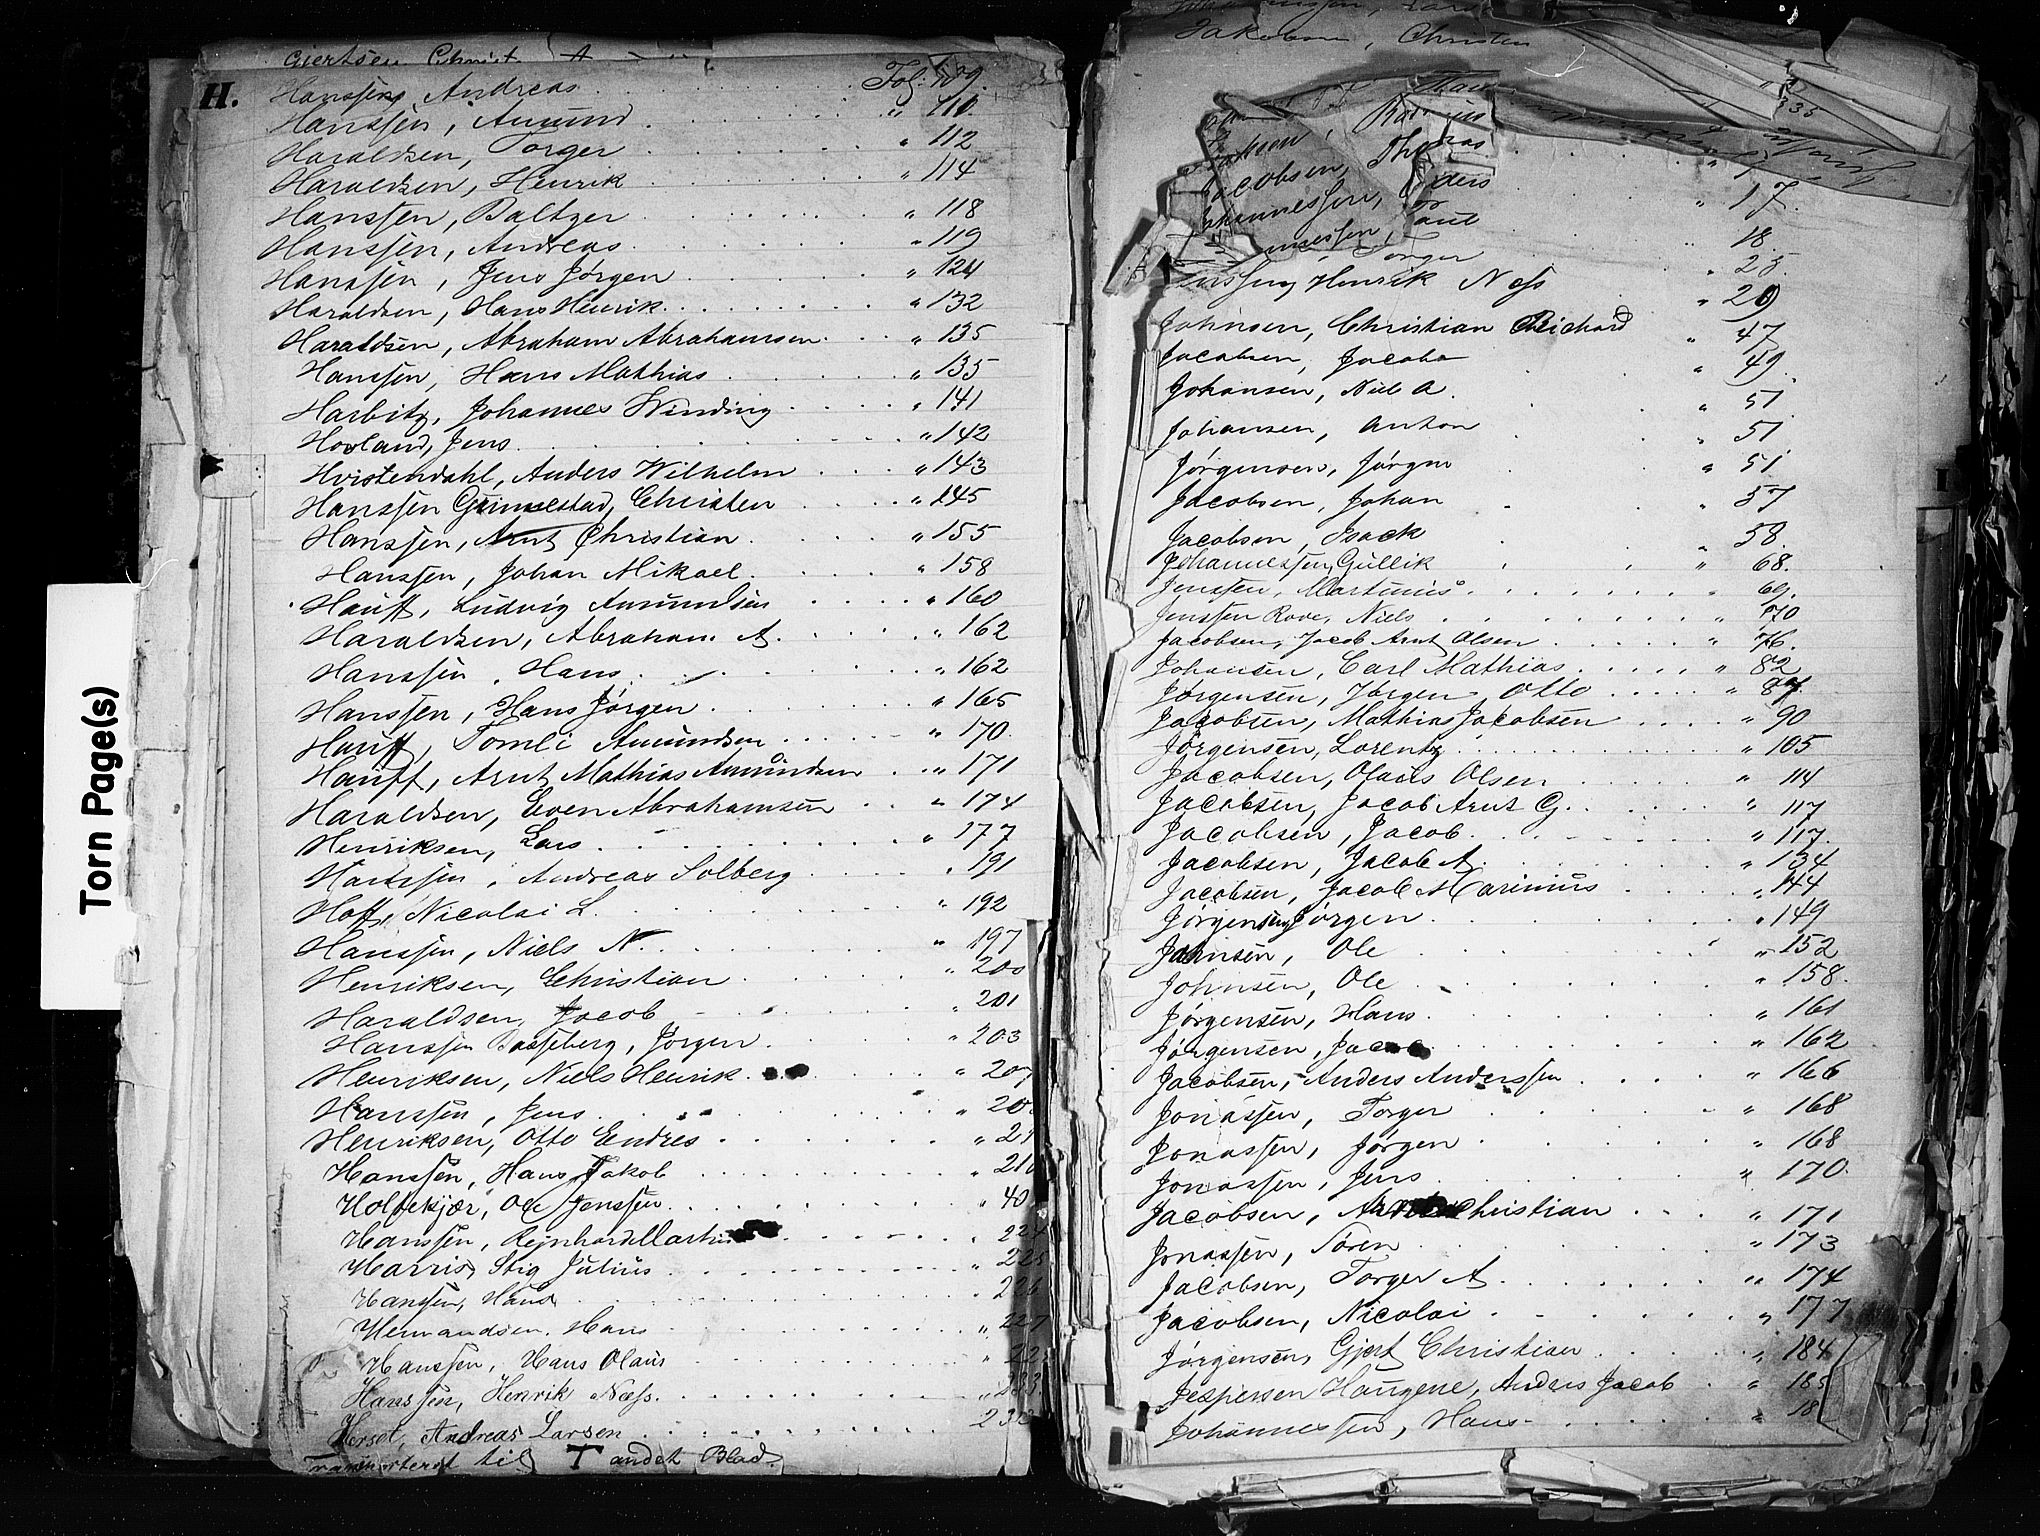 Torn Page(s)
Gjertsen, Christ. A
H.
Hanssen, Andreas Fol. 109.
Hanssen, Amund " 110.
Haraldsen, Torger " 112
Haraldsen, Henrik " 114
Hanssen, Baltzer " 118
Hanssen, Andreas " 119
Hanssen, Jens Jørgen " 124
Haraldsen, Hans Henrik " 132
Haraldsen, Abraham Abrahamsen " 135
Hanssen, Hans Mathias " 135
Harbitz, Johannes Winding " 141
Hovland, Jens " 142
Hvistendahl, Anders Wilhelm " 143
Hanssen Grimelstad, Christen " 145
Hanssen, Arnt Christian " 155
Hanssen, Johan Mikael " 158
Hauff, Ludvig Amundsen " 160
Haraldsen, Abraham A. " 162
Hanssen, Hans " 162
Hanssen, Hans Jørgen " 165
Hauff, Tomli Amundsen " 170.
Hauff, Arnt Mathias Amundsen " 171
Haraldsen, Even Abrahamsen " 174
Henriksen, Lars " 177
Hanssen, Andreas Solberg " 191
Hoff, Nicolai L. " 192
Hanssen, Niels N. " 197
Henriksen, Christian " 200
Haraldsen, Jacob " 201
Hanssen Basseberg, Jørgen " 203
Henriksen, Niels Henrik " 20
Hanssen, Jens " 20
Henriksen, Otto Endres " 21
Hanssen, Hans Jakob " 21
Holtekjær, Ole Jenssen " 40
Hanssen, Reinhard Martin " 224
Harris, Stig Julius " 225
Hanssen, Hans " 226
Hermandsen, Hans " 227
Hanssen, Hans Olaus " 22
Hanssen, Henrik Næss. " 233
Herset, Andreas Larsen 23
Transporteret til T andet Blad.
Jakobsen, Christen
335
Jacobsen, Thomas
Johannessen, Anders " 17.
Knut " 18
Torger " 25
Jenssen, Henrik Ness " 29
Johnsen, Christian Richard " 47
Jacobsen, Jacob " 49.
Johansen, Niels A. " 51
Johansen, Anton " 51
Jørgensen, Jørgen " 51
Jacobsen, Johan " 57
Jacobsen, Isack " 58.
Johannessen, Gullik " 68.
Jenssen, Martinus " 69.
Jenssen Rove, Niels " 70
Jacobsen, Jacob Arnt Olsen " 76.
Johansen, Carl Mathias " 82
Jørgensen, Jørgen Otto " 87.
Jacobsen, Mathias Jacobsen " 90
Jørgensen, Lorentz " 105
Jacobsen, Olaus Olsen " 114
Jacobsen, Jacob Arnt G. " 117
Jacobsen, Jacob " 117.
Jacobsen, Jacob A. " 134
Jacobsen, Jacob Marinius " 144
Jørgensen, Jørgen " 149
Johnsen, Ole " 152
Johnsen, Ole " 158.
Jørgensen, Hans " 161
Jørgensen, Jacob " 162
Jacobsen, Anders Anderssen " 166
Jonassen, Torger " 168
Jonassen, Jørgen " 168
Jonassen, Jens " 170.
Jacobsen, Christian " 171
Jonassen, Søren " 173
Jacobsen, Torger A. " 174
Jacobsen, Nicolai " 177
Jørgensen, Gjert Christian " 184
Jespersen Haugene, Anders Jacob " 185
Johannessen, Hans " 18